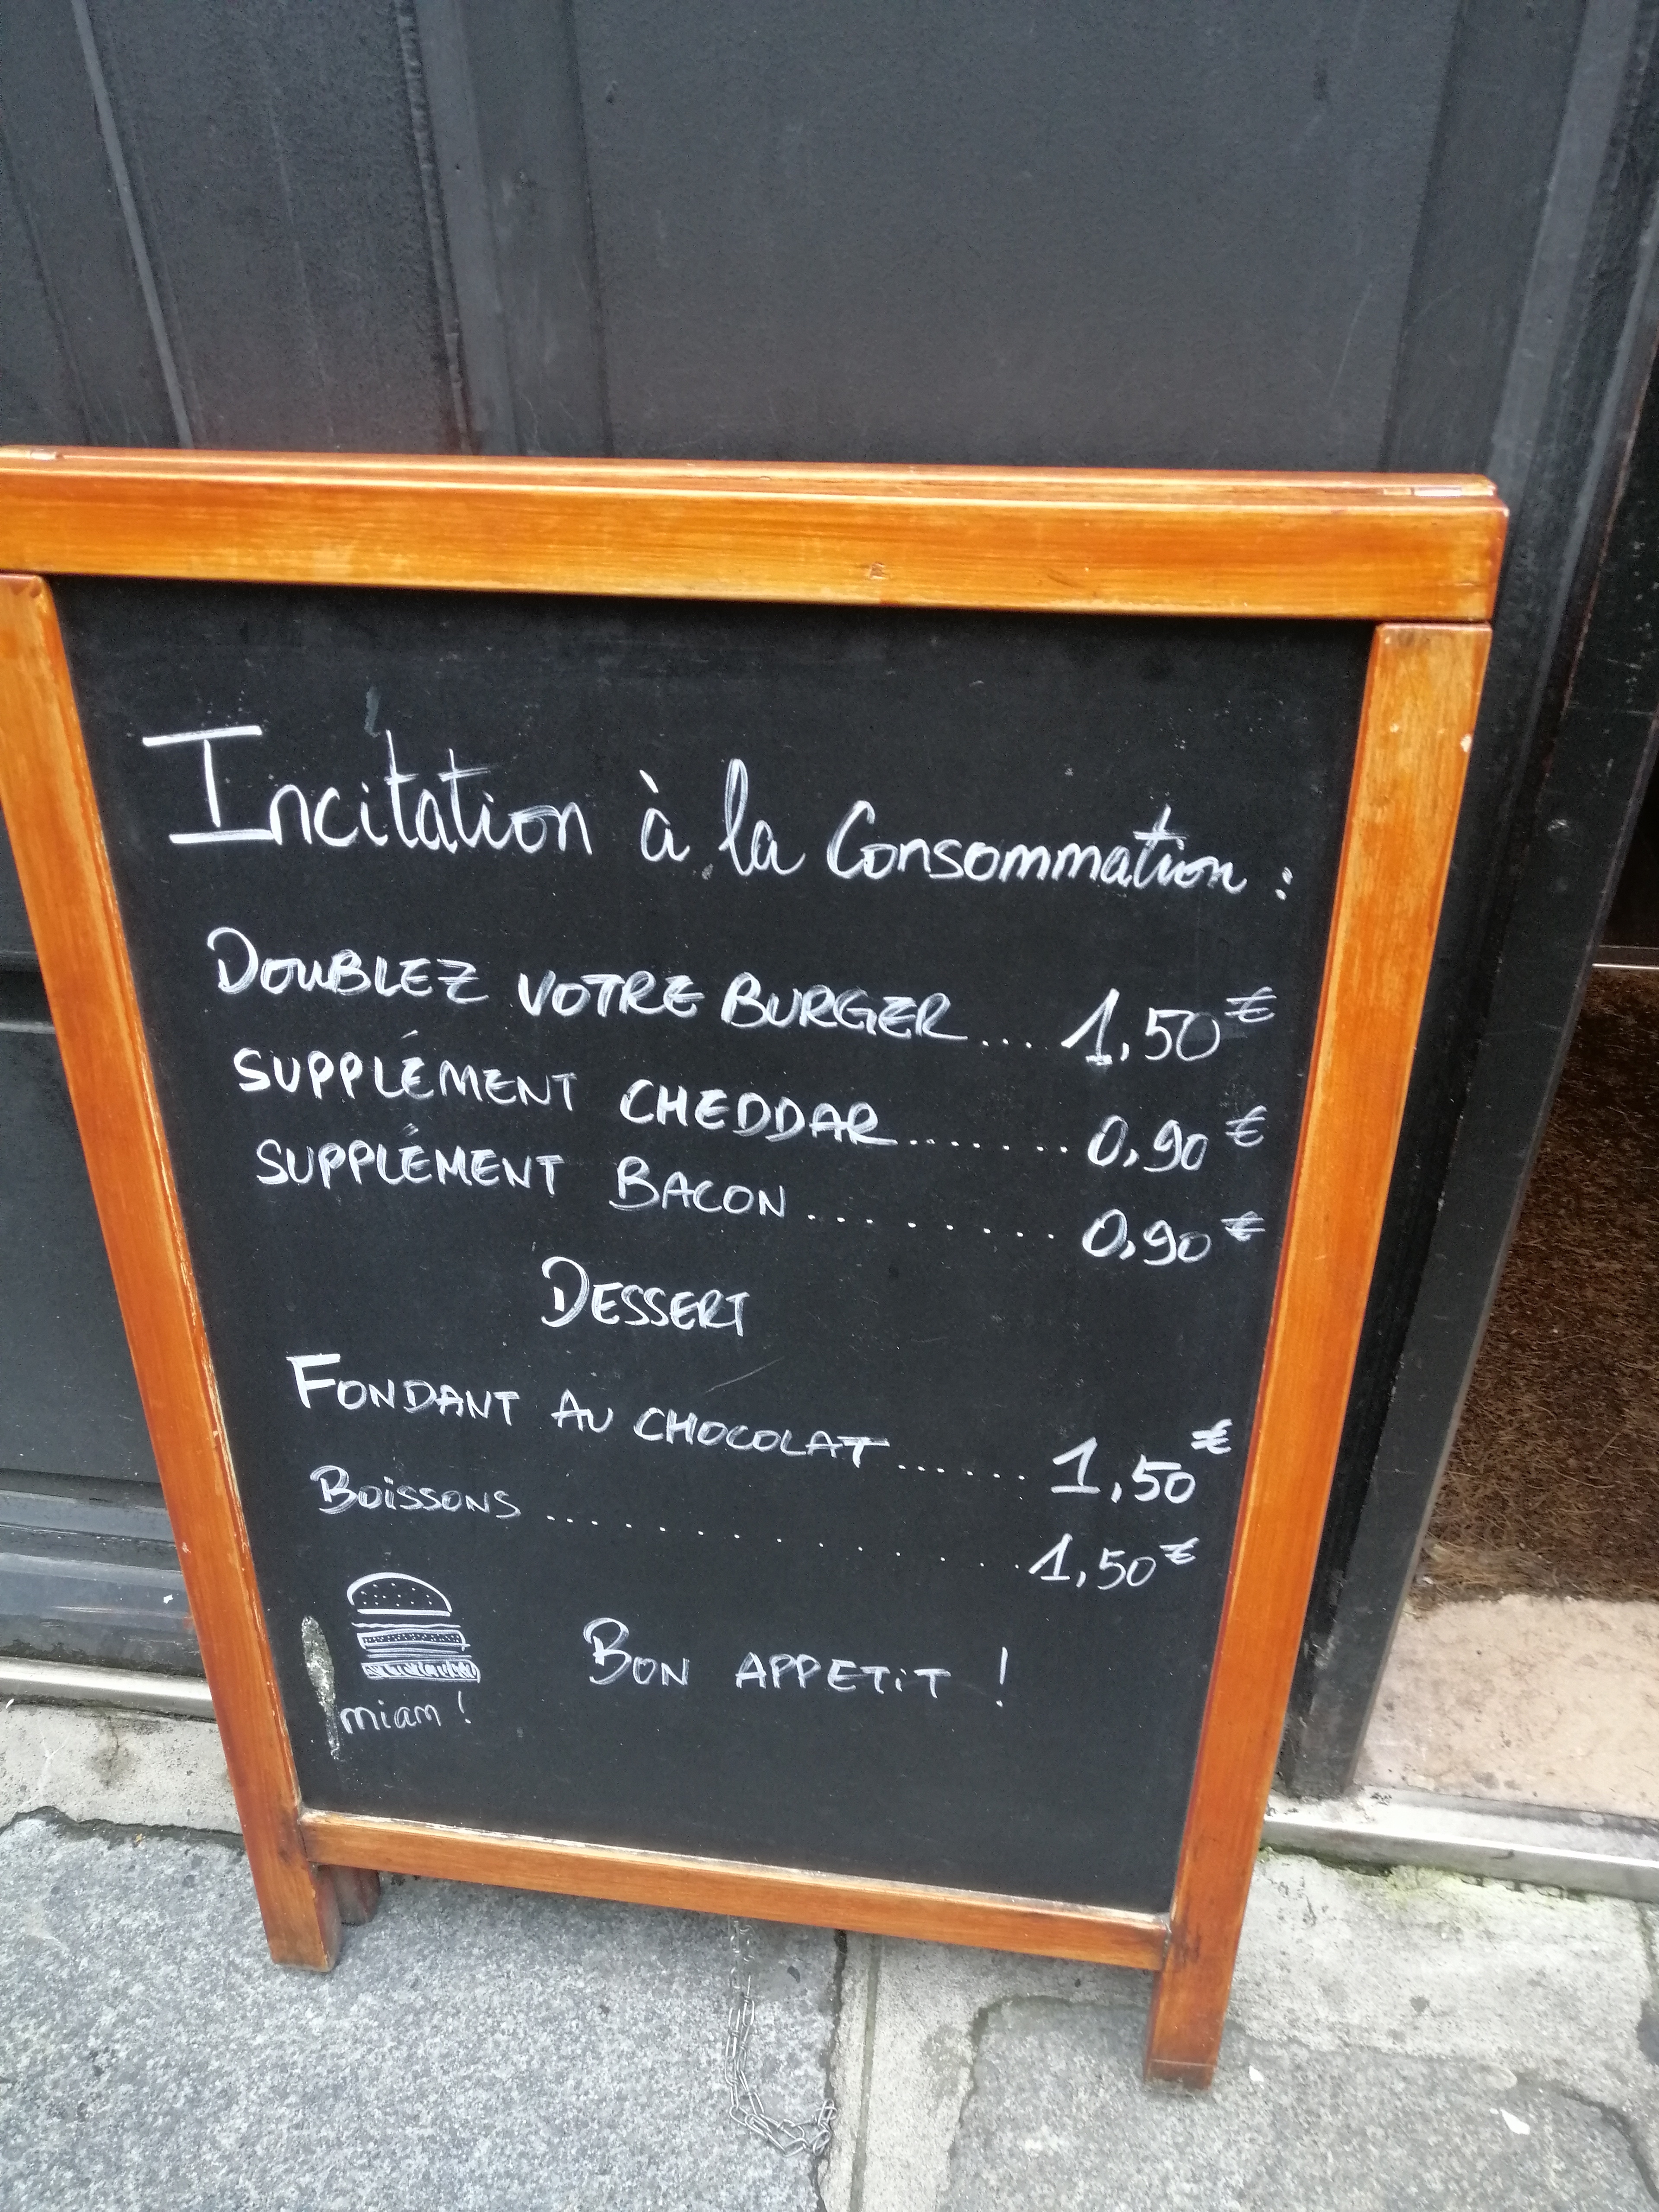 Incitation à la Consommation :
DOUBLEZ VOTRE BURGER.... 1,50€
SUPPLÉMENT CHEDDAR....... 0,90€
SUPPLÉMENT BACON ......... 0,90€
DESSERT
FONDANT AU CHOCOLAT...... 1,50€
BOiSSONS ............... 1,50€
miam !
BON APPETiT !